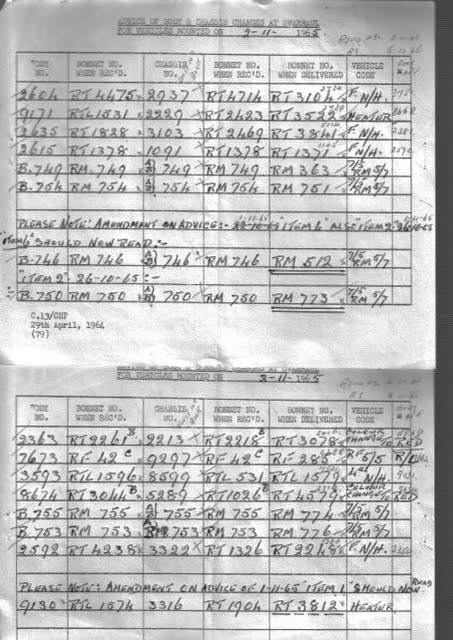 ADVICE OF BODY & CHASSIS CHANGES AT OVERHAUL
FOR VEHICLES MOUNTED ON 2-11- 1965
BODY NO. BONNET NO. WHEN REC'D. CHASSIS NO. BONNET NO. WHEN REC'D. BONNET NO. WHEN DELIVERED VEHICLE CODE
2604 RT 4475 2937 RT 4714 RT 3104 F. N/H.
9171 RTL 1531 2229 RT 2423 RT 3522 HEATER
2635 RT 1828 3103 RT 2469 RT 3841 F. N/H.
2615 RT 1378 1091 RT 1378 RT 1371 F. N/H.
B.749 RM. 749 749 RM 749 RM 363 7/5 RM 5/7
B.754 RM 754 754 RM 754 RM 751 7/5 RM 5/7
PLEASE NOTE: AMENDMENT ON ADVICE:- 22-10-65 "ITEM 6" ALSO "ITEM 2" 26-10-65
"ITEM 6" SHOULD NOW READ:-
B.746 RM 746 746 RM 746 RM 512 7/5 RM 5/7
"ITEM 2" 26-10-65:-
B.750 RM 750 750 RM 750 RM 773 7/5 RM 5/7
C.13/CHP
29th April, 1964
(79)
ADVICE OF BODY & CHASSIS CHANGES AT OVERHAUL
FOR VEHICLES MOUNTED ON 3-11- 1965
BODY NO. BONNET NO. WHEN REC'D. CHASSIS NO. BONNET NO. WHEN REC'D. BONNET NO. WHEN DELIVERED VEHICLE CODE
2363 RT 2261 B 2213 RT 2218 B RT 3078 COLOUR CHANGE TO RED
7673 RF 42 C 9297 RF 42 C RF 288 RF 5/5
3593 RTL 1596 8599 RTL 531 RTL 1579 N/H.
8674 RT 3044 B 5289 RT 1026 B RT 4579 COLOUR CHANGE TO RED
B.755 RM 755 755 RM 755 RM 774 7/5 RM 5/7
B.753 RM 753 753 RM 753 RM 776 7/5 RM 5/7
2592 RT 4238 3322 RT 1326 RT 2248 F. N/H.
PLEASE NOTE: AMENDMENT ON ADVICE OF 1-11-65 "ITEM 1" SHOULD NOW READ
9130 RTL 1574 3316 RT 1904 RT 3812 HEATER